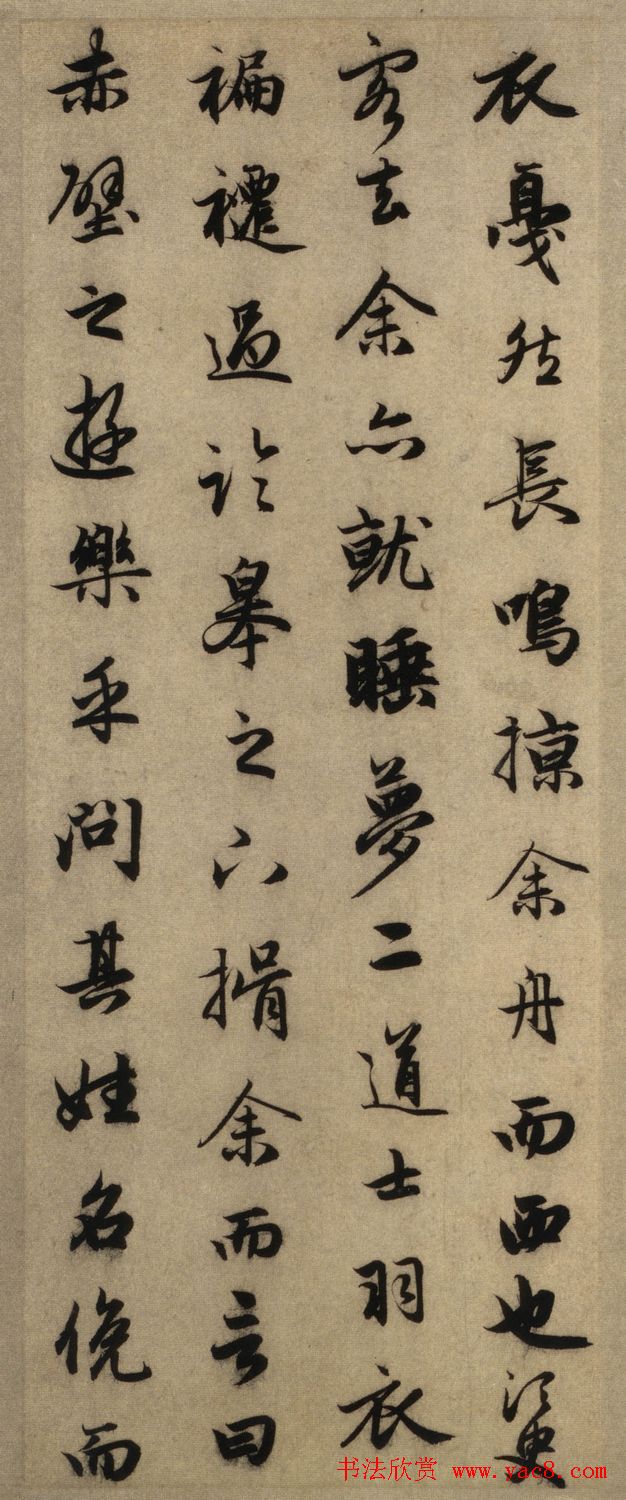 衣戛然長鳴掠余舟而西也須臾
客去余亦就睡夢二道士羽衣
褊褼過臨皋之下揖余而言曰
赤壁之遊樂乎問其姓名俛而
书法欣赏 www.yac8.com